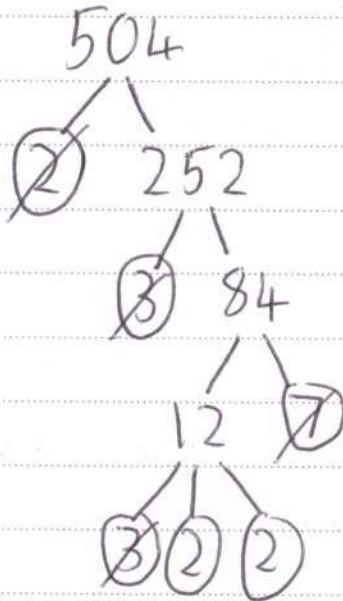 504
2 252
3 84
12 7
3 2 2